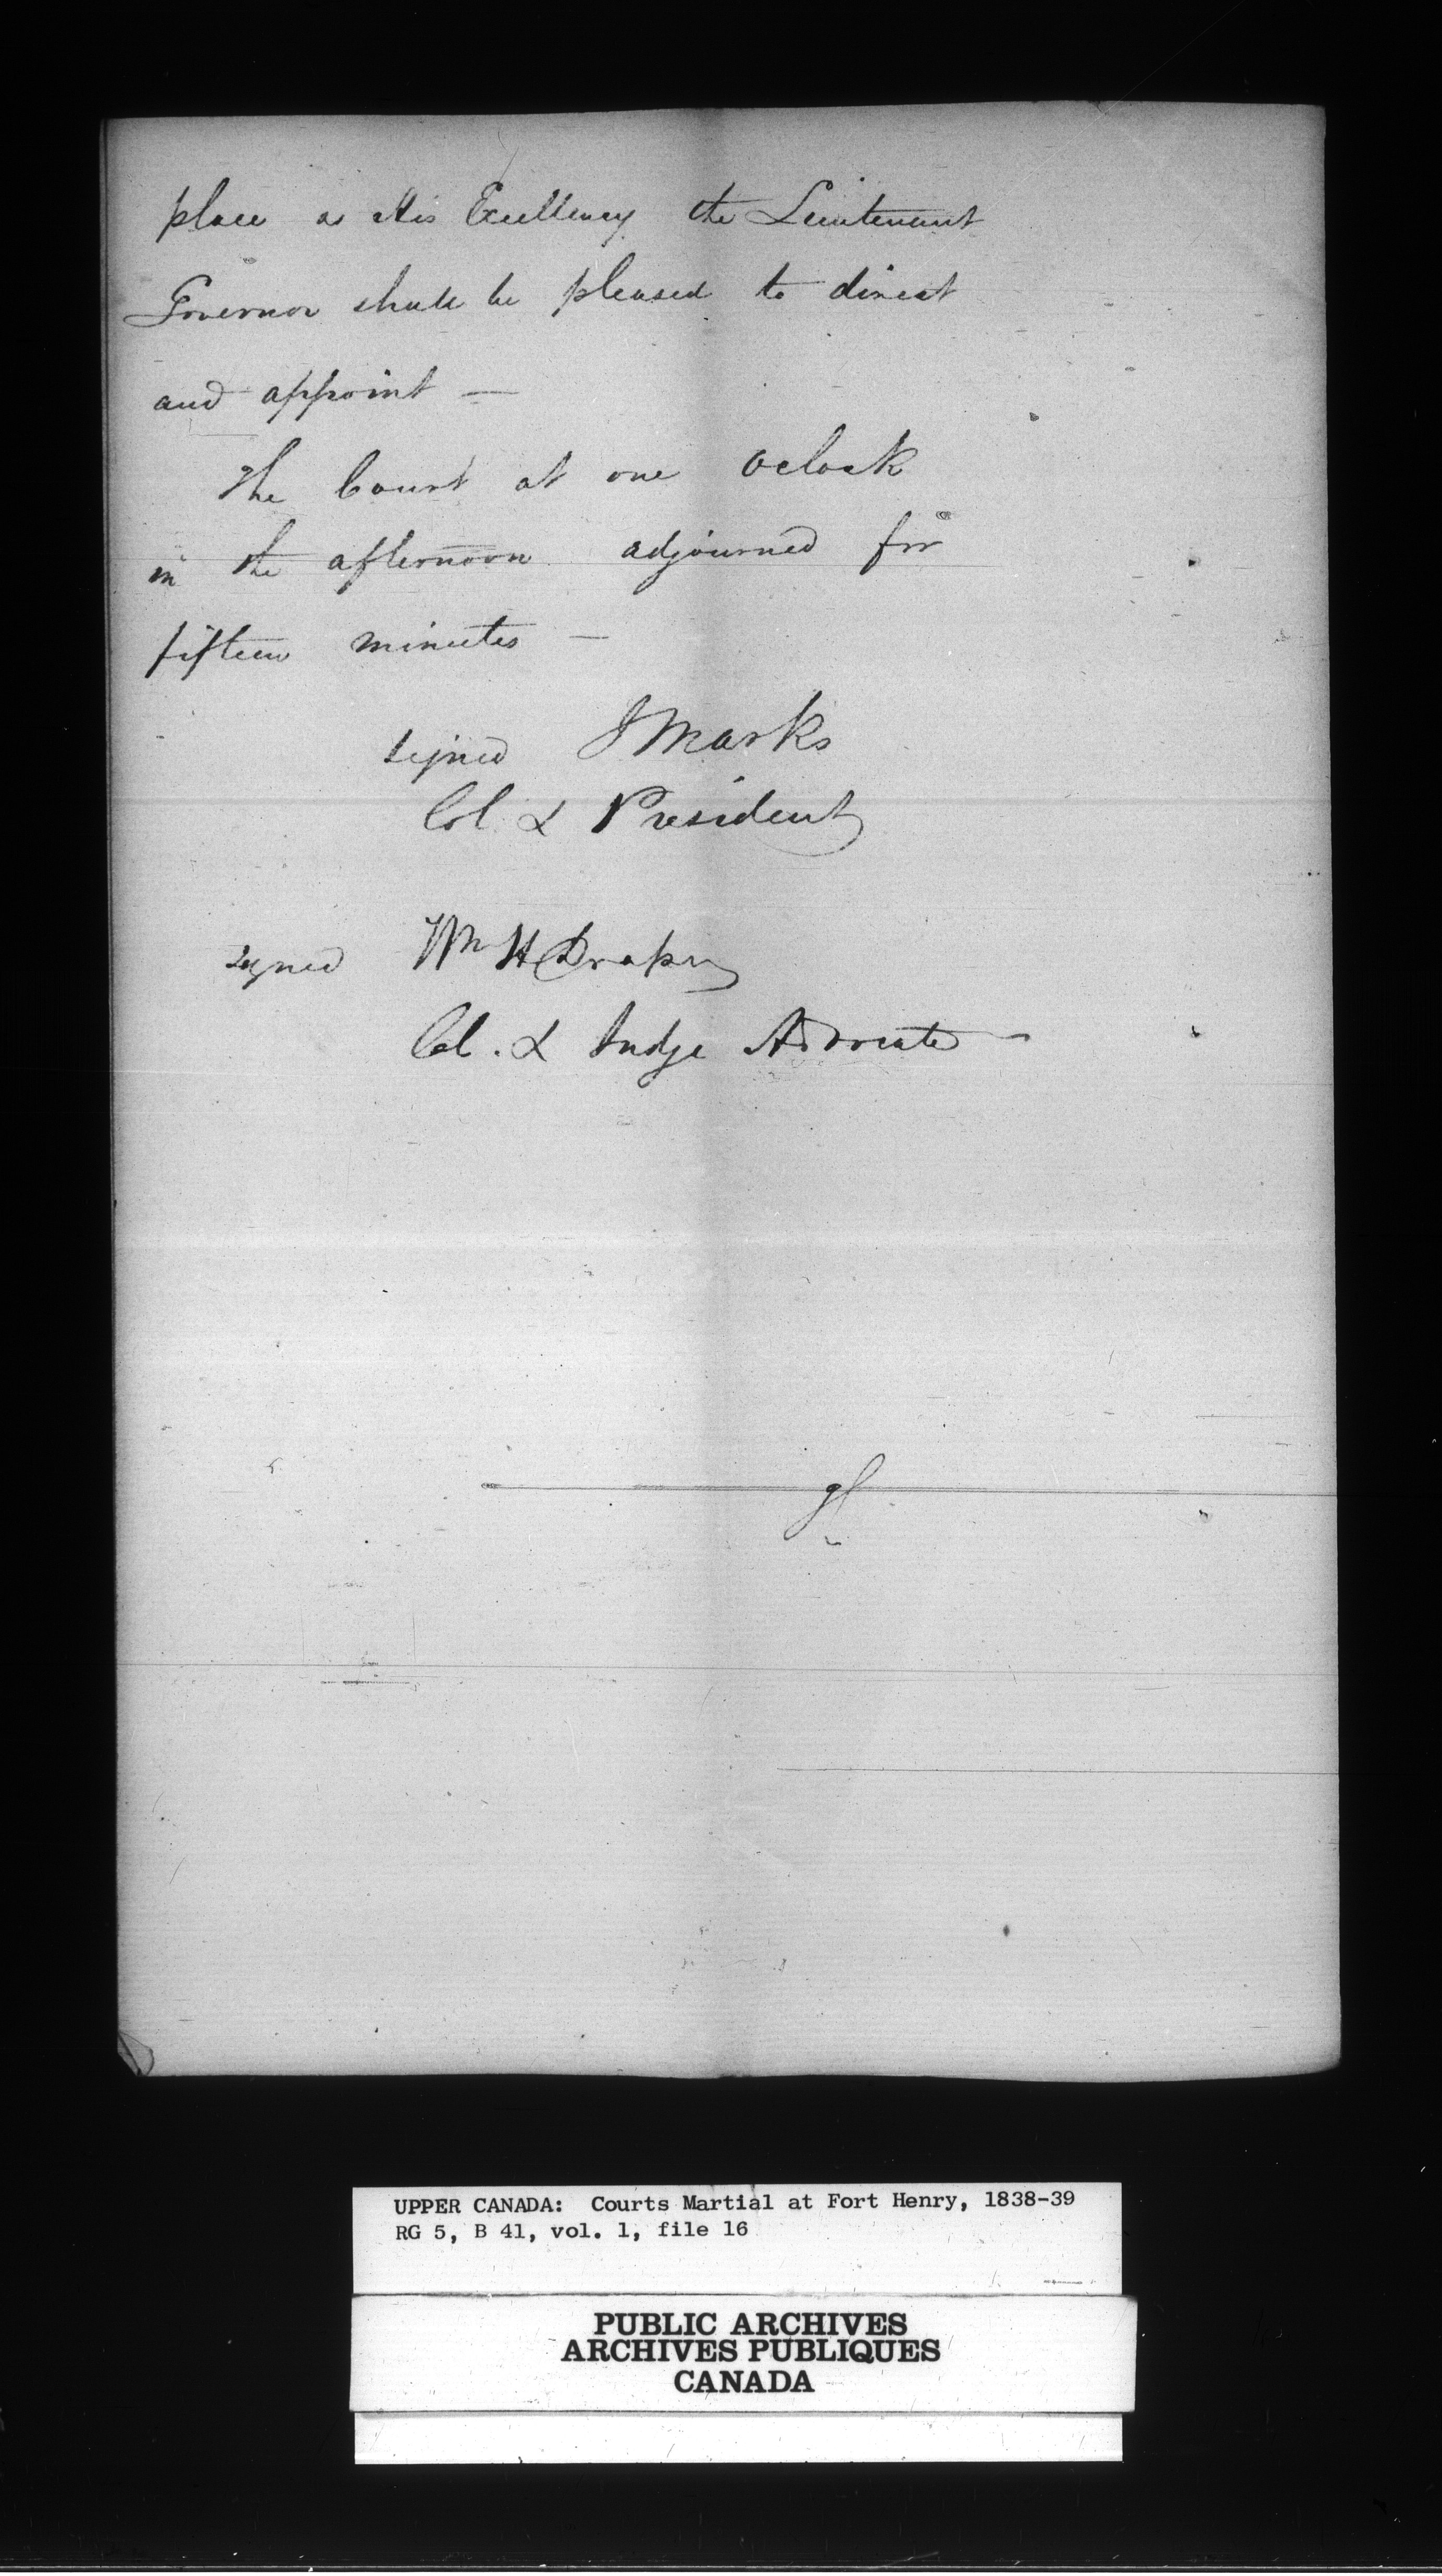 place as His Excellency the Lieutenant
Governor shall be pleased to direct
and appoint —
The Court at one oclock
in the afternoon adjourned for
fifteen minutes —
signed J Marks
Col. & President
signed Wm H Draper
Col. & Judge Advocate —
UPPER CANADA: Courts Martial at Fort Henry, 1838-39
RG 5, B 41, vol. 1, file 16
PUBLIC ARCHIVES
ARCHIVES PUBLIQUES
CANADA